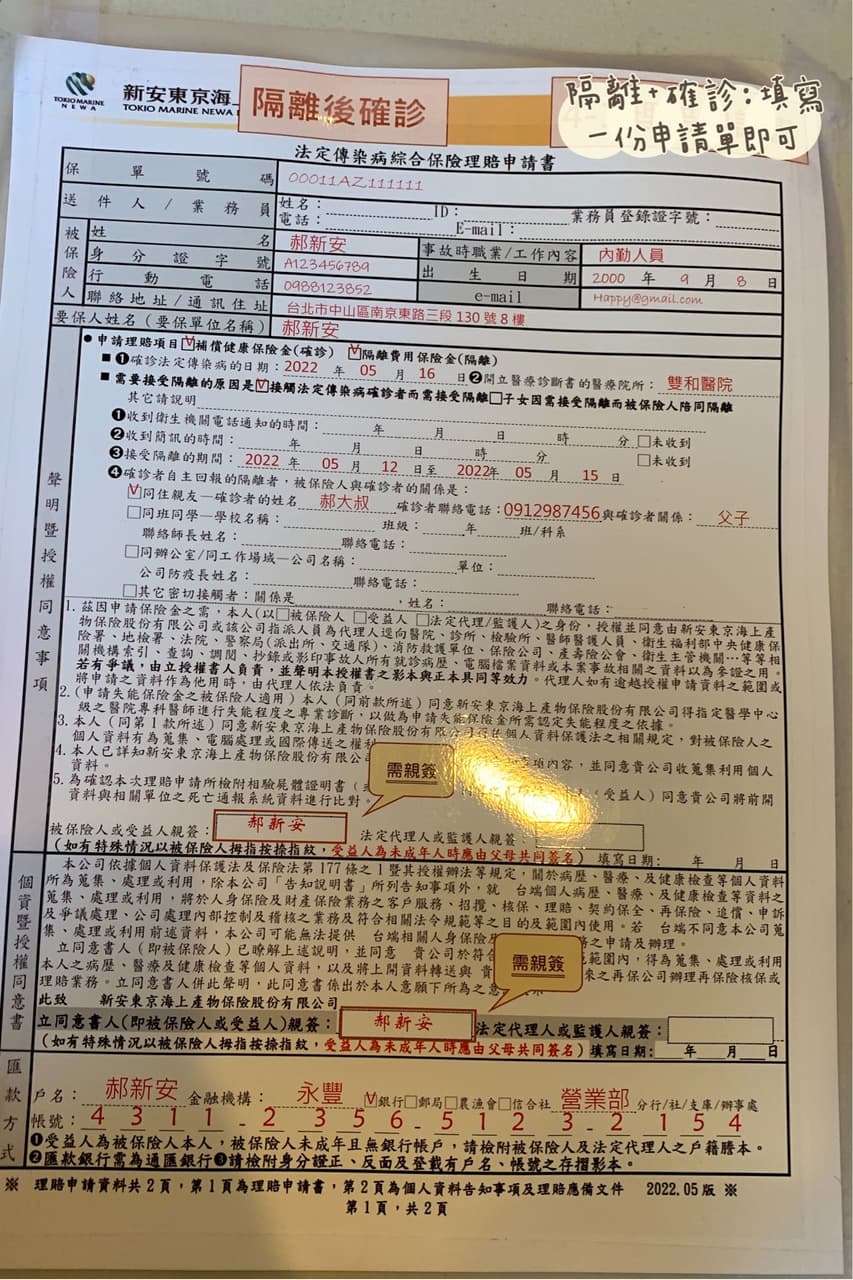 TOKIO MARINE
NEWA
新安東京海
TOKIO MARINE NEWA
隔離後確診
隔離+確診:填寫
一份申請單即可
法定傳染病綜合保險理賠申請書
保單號碼 00011AZ111111
送件人/業務員 姓名: ID: 業務員登錄證字號:
電話: E-mail:
被保險人
姓名 郝新安 事故時職業/工作內容 內勤人員
身分證字號 A123456789 出生日期 2000 年 9 月 8 日
行動電話 0988123852 e-mail Happy@gmail.com
聯絡地址/通訊住址 台北市中山區南京東路三段130號8樓
要保人姓名(要保單位名稱) 郝新安
聲明暨授權同意事項
●申請理賠項目☑補償健康保險金(確診) ☑隔離費用保險金(隔離)
■❶確診法定傳染病的日期:2022 年 05 月 16 日❷開立醫療診斷書的醫療院所: 雙和醫院
■需要接受隔離的原因是☑接觸法定傳染病確診者而需接受隔離□子女因需接受隔離而被保險人陪同隔離
其它請說明
❶收到衛生機關電話通知的時間: 年 月 日 時 分 □未收到
❷收到簡訊的時間: 年 月 日 時 分 □未收到
❸接受隔離的期間: 2022 年 05 月 12 日至 2022年 05 月 15 日
❹確診者自主回報的隔離者,被保險人與確診者的關係是:
☑同住親友—確診者的姓名 郝大叔 確診者聯絡電話:0912987456與確診者關係: 父子
□同班同學—學校名稱: 班級: 年 班/科系
聯絡師長姓名: 聯絡電話:
□同辦公室/同工作場域—公司名稱: 單位:
公司防疫長姓名: 聯絡電話:
□其它密切接觸者:關係是 ,姓名: 聯絡電話:
1. 茲因申請保險金之需,本人(以□被保險人 □受益人 □法定代理/監護人)之身份,授權並同意由新安東京海上產
物保險股份有限公司或該公司指派人員為代理人逕向醫院、診所、檢驗所、醫師醫護人員、衛生福利部中央健康保
險署、地檢署、法院、警察局(派出所、交通隊)、消防救護單位、保險公司、產壽險公會、衛生主管機關…等等相
關機構索引、查詢、調閱、抄錄或影印事故人所有就診病歷、電腦檔案資料或本案事故相關之資料以為參證之用。
若有爭議,由立授權書人負責,並聲明本授權書之影本與正本具同等效力。代理人如有逾越授權申請資料之範圍或
將申請之資料作為他用時,由代理人依法負責。
2. (申請失能保險金之被保險人適用)本人(同前款所述)同意新安東京海上產物保險股份有限公司得指定醫學中心
級之醫院專科醫師進行失能程度之專業診斷,以做為申請失能保險金所需認定失能程度之依據。
3. 本人(同第1款所述)同意新安東京海上產物保險股份有限公司得依個人資料保護法之相關規定,對被保險人之
個人資料有為蒐集、電腦處理或國際傳送之權利
4. 本人已詳知新安東京海上產物保險股份有限公 事項內容,並同意貴公司收蒐集利用個人
資料。
5. 為確認本次理賠申請所檢附相驗屍體證明書( (受益人)同意貴公司將前開
資料與相關單位之死亡通報系統資料進行比對。
需親簽
被保險人或受益人親簽: 郝新安 法定代理人或監護人親簽:
(如有特殊情況以被保險人拇指按捺指紋,受益人為未成年人時應由父母共同簽名) 填寫日期: 年 月 日
個資暨授權同意書
本公司依據個人資料保護法及保險法第177條之1暨其授權辦法等規定,關於病歷、醫療、及健康檢查等個人資料
所為蒐集、處理或利用,除本公司「告知說明書」所列告知事項外,就 台端個人病歷、醫療、及健康檢查等資料之
蒐集、處理或利用,將於人身保險及財產保險業務之客戶服務、招攬、核保、理賠、契約保全、再保險、追償、申訴
及爭議處理、公司處理內部控制及稽核之業務及符合相關法令規範等之目的及範圍內使用。若 台端不同意本公司蒐
集、處理或利用前述資料,本公司可能無法提供 台端相關人身保險及 務之申請及辦理。
立同意書人(即被保險人)已瞭解上述說明,並同意 貴公司於符合 範圍內,得為蒐集、處理或利用
本人之病歷、醫療及健康檢查等個人資料,以及將上開資料轉送與 貴 來之再保公司辦理再保險核保或
理賠業務。立同意書人併此聲明,此同意書係出於本人意願下所為之意
需親簽
此致 新安東京海上產物保險股份有限公司
立同意書人(即被保險人或受益人)親簽: 郝新安 法定代理人或監護人親簽:
(如有特殊情況以被保險人拇指按捺指紋,受益人為未成年人時應由父母共同簽名) 填寫日期: 年 月 日
匯款方式
戶名: 郝新安 金融機構: 永豐 ☑銀行□郵局□農漁會□信合社 營業部 分行/社/支庫/辦事處
帳號: 4 3 1 1 - 2 3 5 6 - 5 1 2 3 - 2 1 5 4
❶受益人為被保險人本人,被保險人未成年且無銀行帳戶,請檢附被保險人及法定代理人之戶籍謄本。
❷匯款銀行需為通匯銀行❸請檢附身分證正、反面及登載有戶名、帳號之存摺影本。
※ 理賠申請資料共2頁,第1頁為理賠申請書,第2頁為個人資料告知事項及理賠應備文件 2022.05版 ※
第1頁,共2頁